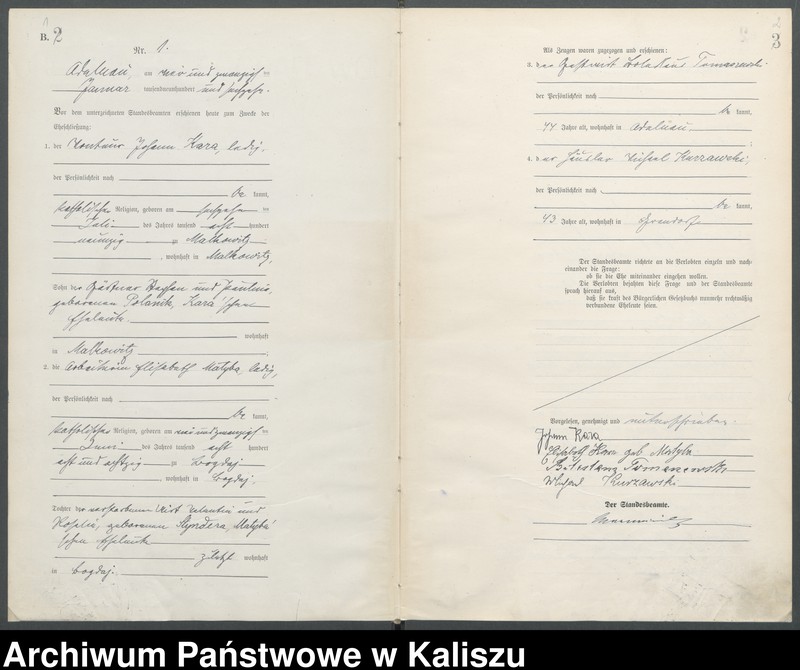 B. 2
Nr. 1.
Adelnau, am zwei und zwanzigsten
Januar tausendneunhundert und sechzehn.
Vor dem unterzeichneten Standesbeamten erschienen heute zum Zwecke der
Eheschließung:
1. der Johann Kara, ledig,
der Persönlichkeit nach
be kannt,
katholischer Religion, geboren am sechzehnten
Juli des Jahres tausend acht hundert
neunzig zu Malkowitz
, wohnhaft in Malkowitz,
Sohn des Gärtner und
geborenen Kara'schen
Eheleute
wohnhaft
in Malkowitz ;
2. die Arbeiterin Elisabeth Matyba, ledig,
der Persönlichkeit nach
be kannt,
katholischer Religion, geboren am zwei und zwanzigsten
Juni des Jahres tausend acht hundert
acht und achtzig zu Bogdaj
, wohnhaft in Bogdaj.
Tochter der verstorbenen Valentin und
Rosalie, geborenen Matyba'
schen Eheleute
zuletzt wohnhaft
in Bogdaj.
3
Als Zeugen waren zugezogen und erschienen:
3. der Gastwirt Tomaszewski
der Persönlichkeit nach
be kannt,
44 Jahre alt, wohnhaft in Adelnau
;
4. der Häusler Michael Kurzawski,
der Persönlichkeit nach
be kannt,
43 Jahre alt, wohnhaft in
Der Standesbeamte richtete an die Verlobten einzeln und nach-
einander die Frage:
ob sie die Ehe miteinander eingehen wollen.
Die Verlobten bejahten diese Frage und der Standesbeamte
sprach hierauf aus,
daß sie kraft des Bürgerlichen Gesetzbuchs nunmehr rechtmäßig
verbundene Eheleute seien.
Vorgelesen, genehmigt und unterschrieben.
Johann Kara
Elisabeth Kara geb. Matyba
Tomaszewski
Michael Kurzawski
Der Standesbeamte.
Archiwum Państwowe w Kaliszu